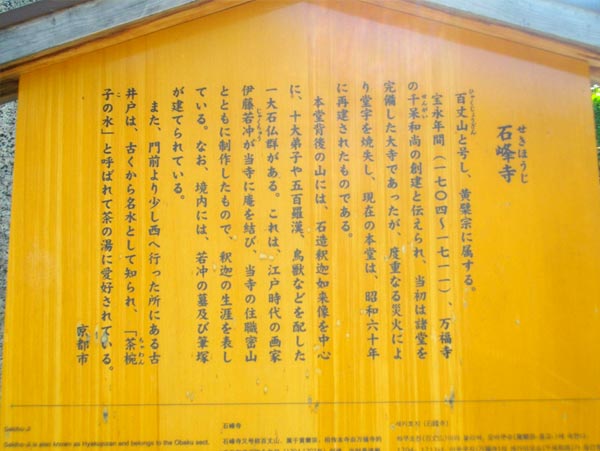 せきほうじ
石峰寺
ひゃくじょうざん
百丈山と号し、黄檗宗に属する。
宝永年間（一七〇四～一七一一）、万福寺
せんがい
の千呆和尚の創建と伝えられ、当初は諸堂を
完備した大寺であったが、度重なる災火によ
り堂宇を焼失し、現在の本堂は、昭和六十年
に再建されたものである。
本堂背後の山には、石造釈迦如来像を中心
に、十大弟子や五百羅漢、鳥獣などを配した
一大石仏群がある。これは、江戸時代の画家
じゃくちゅう
伊藤若冲が当寺に庵を結び、当寺の住職密山
とともに制作したもので、釈迦の生涯を表し
ている。なお、境内には、若冲の墓及び筆塚
が建てられている。
また、門前より少し西へ行った所にある古
井戸は、古くから名水として知られ、「茶椀
ちゃわん
子の水」と呼ばれて茶の湯に愛好されている。
京都市
Sekiho-Ji
Sekiho-Ji is also known as Hyakujozan and belongs to the Obaku sect.
石峰寺
石峰寺又号称百丈山，属于黄檗宗，
세키호지 (石峰寺)